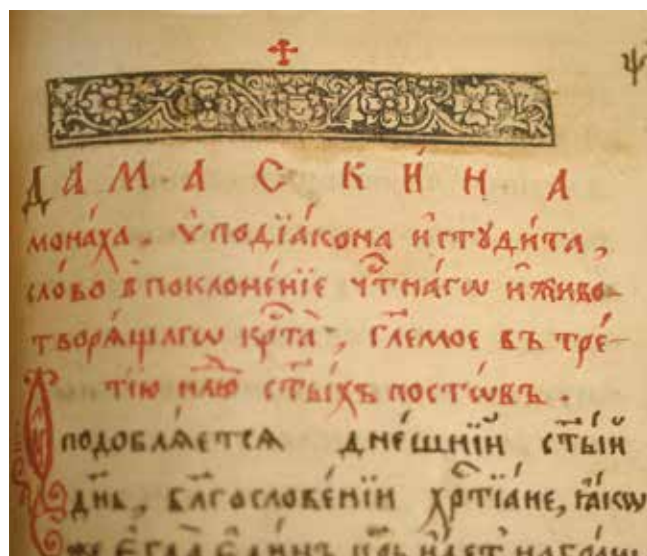 Ѱ
ДАМАСКИ́НА
мона́ха, ѵ҆подїа́кона и҆стꙋди́та,
сло́во в̾поклоне́нїе чⷭ҇тна́гѡ и҆живо-
творѧ́щагѡ крⷭ҇та̀, гл҃емое въ тре́-
тїю нлⷣю ст҃ы́хъ посто́въ.
подоблѧ́етсѧ дне́шнїй ст҃ы́й
дн҃ь, бл҃гослове́нїи хрⷭ҇тїа́не,